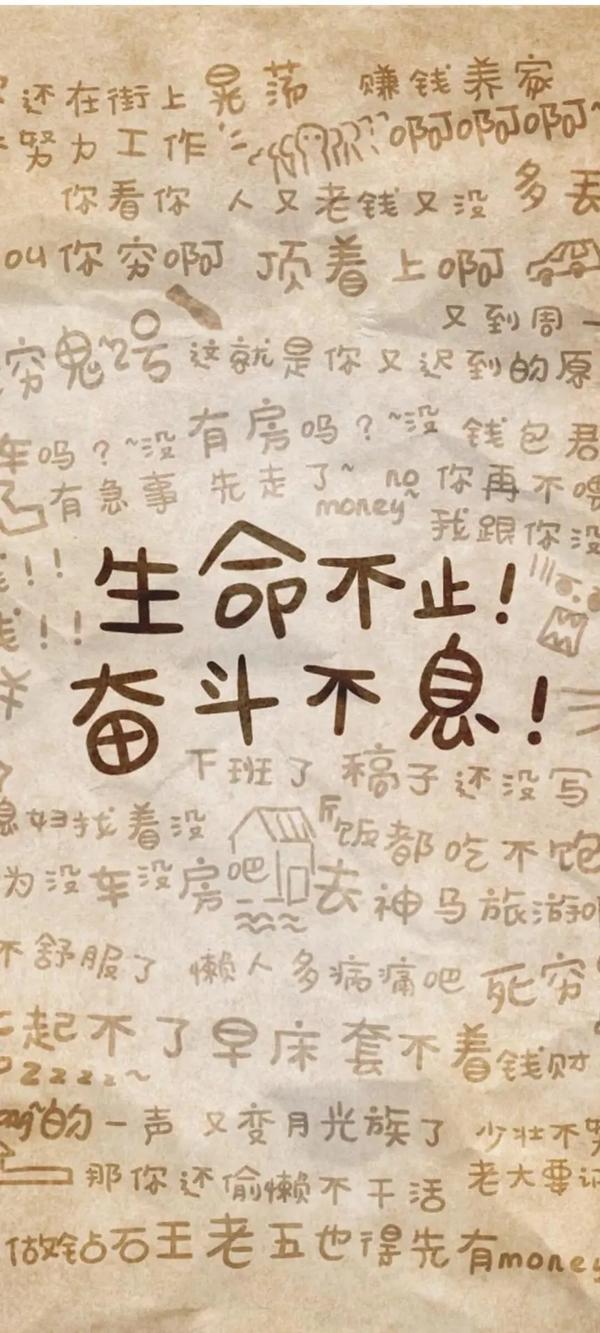 还在街上晃荡 赚钱养家
努力工作 啊啊啊~
你看你 人又老钱又没 多丢
叫你穷啊 顶着上啊
又到周一
穷鬼~2号 这就是你又迟到的原
车吗？~没有房吗？~没 钱包君
有急事 先走了~ no money~ 你再不喂
我跟你没
!!
生命不止!
!!
奋斗不息!
下班了 稿子还没写
息妇找着没 饭都吃不饱
为没车没房吧 去神马旅游
不舒服了 懒人多病痛吧 死穷
起不了早床 套不着钱财
zzzz~
的一声 又变月光族了 少壮不努
那你还偷懒不干活 老大要记
做钻石王老五也得先有money